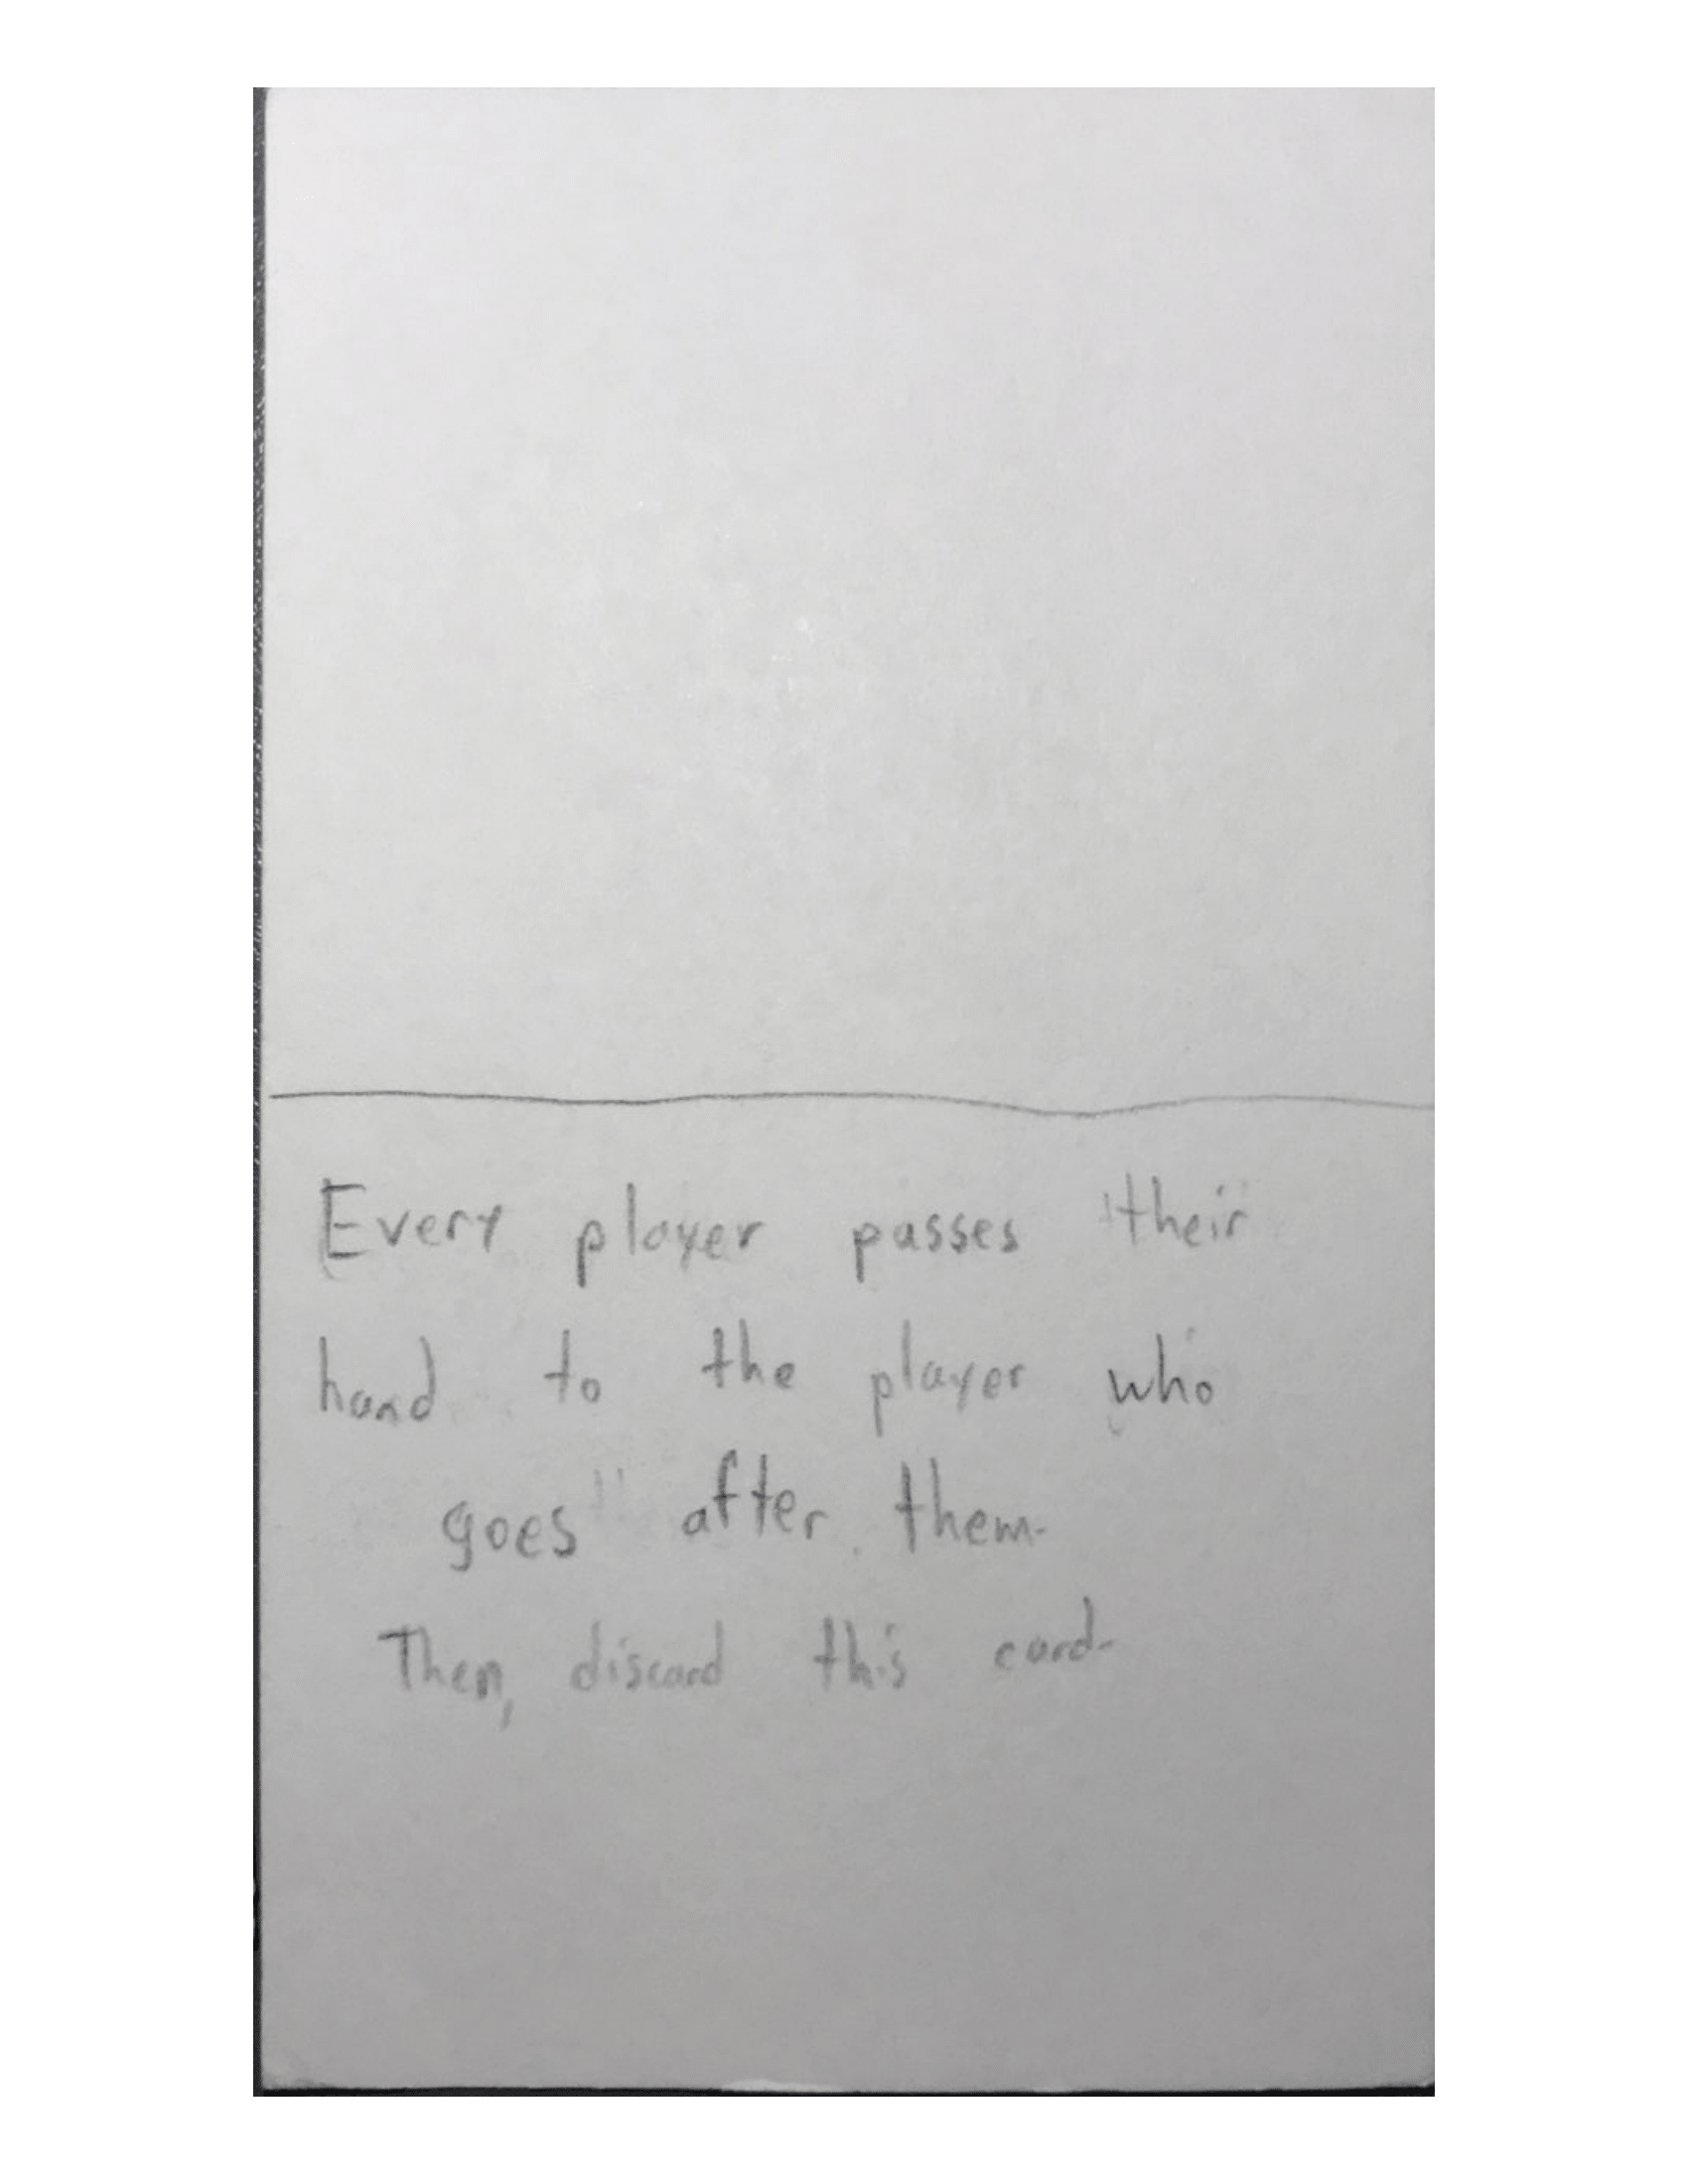 Every player passes their
hand to the player who
goes after them.
Then, discard this card.